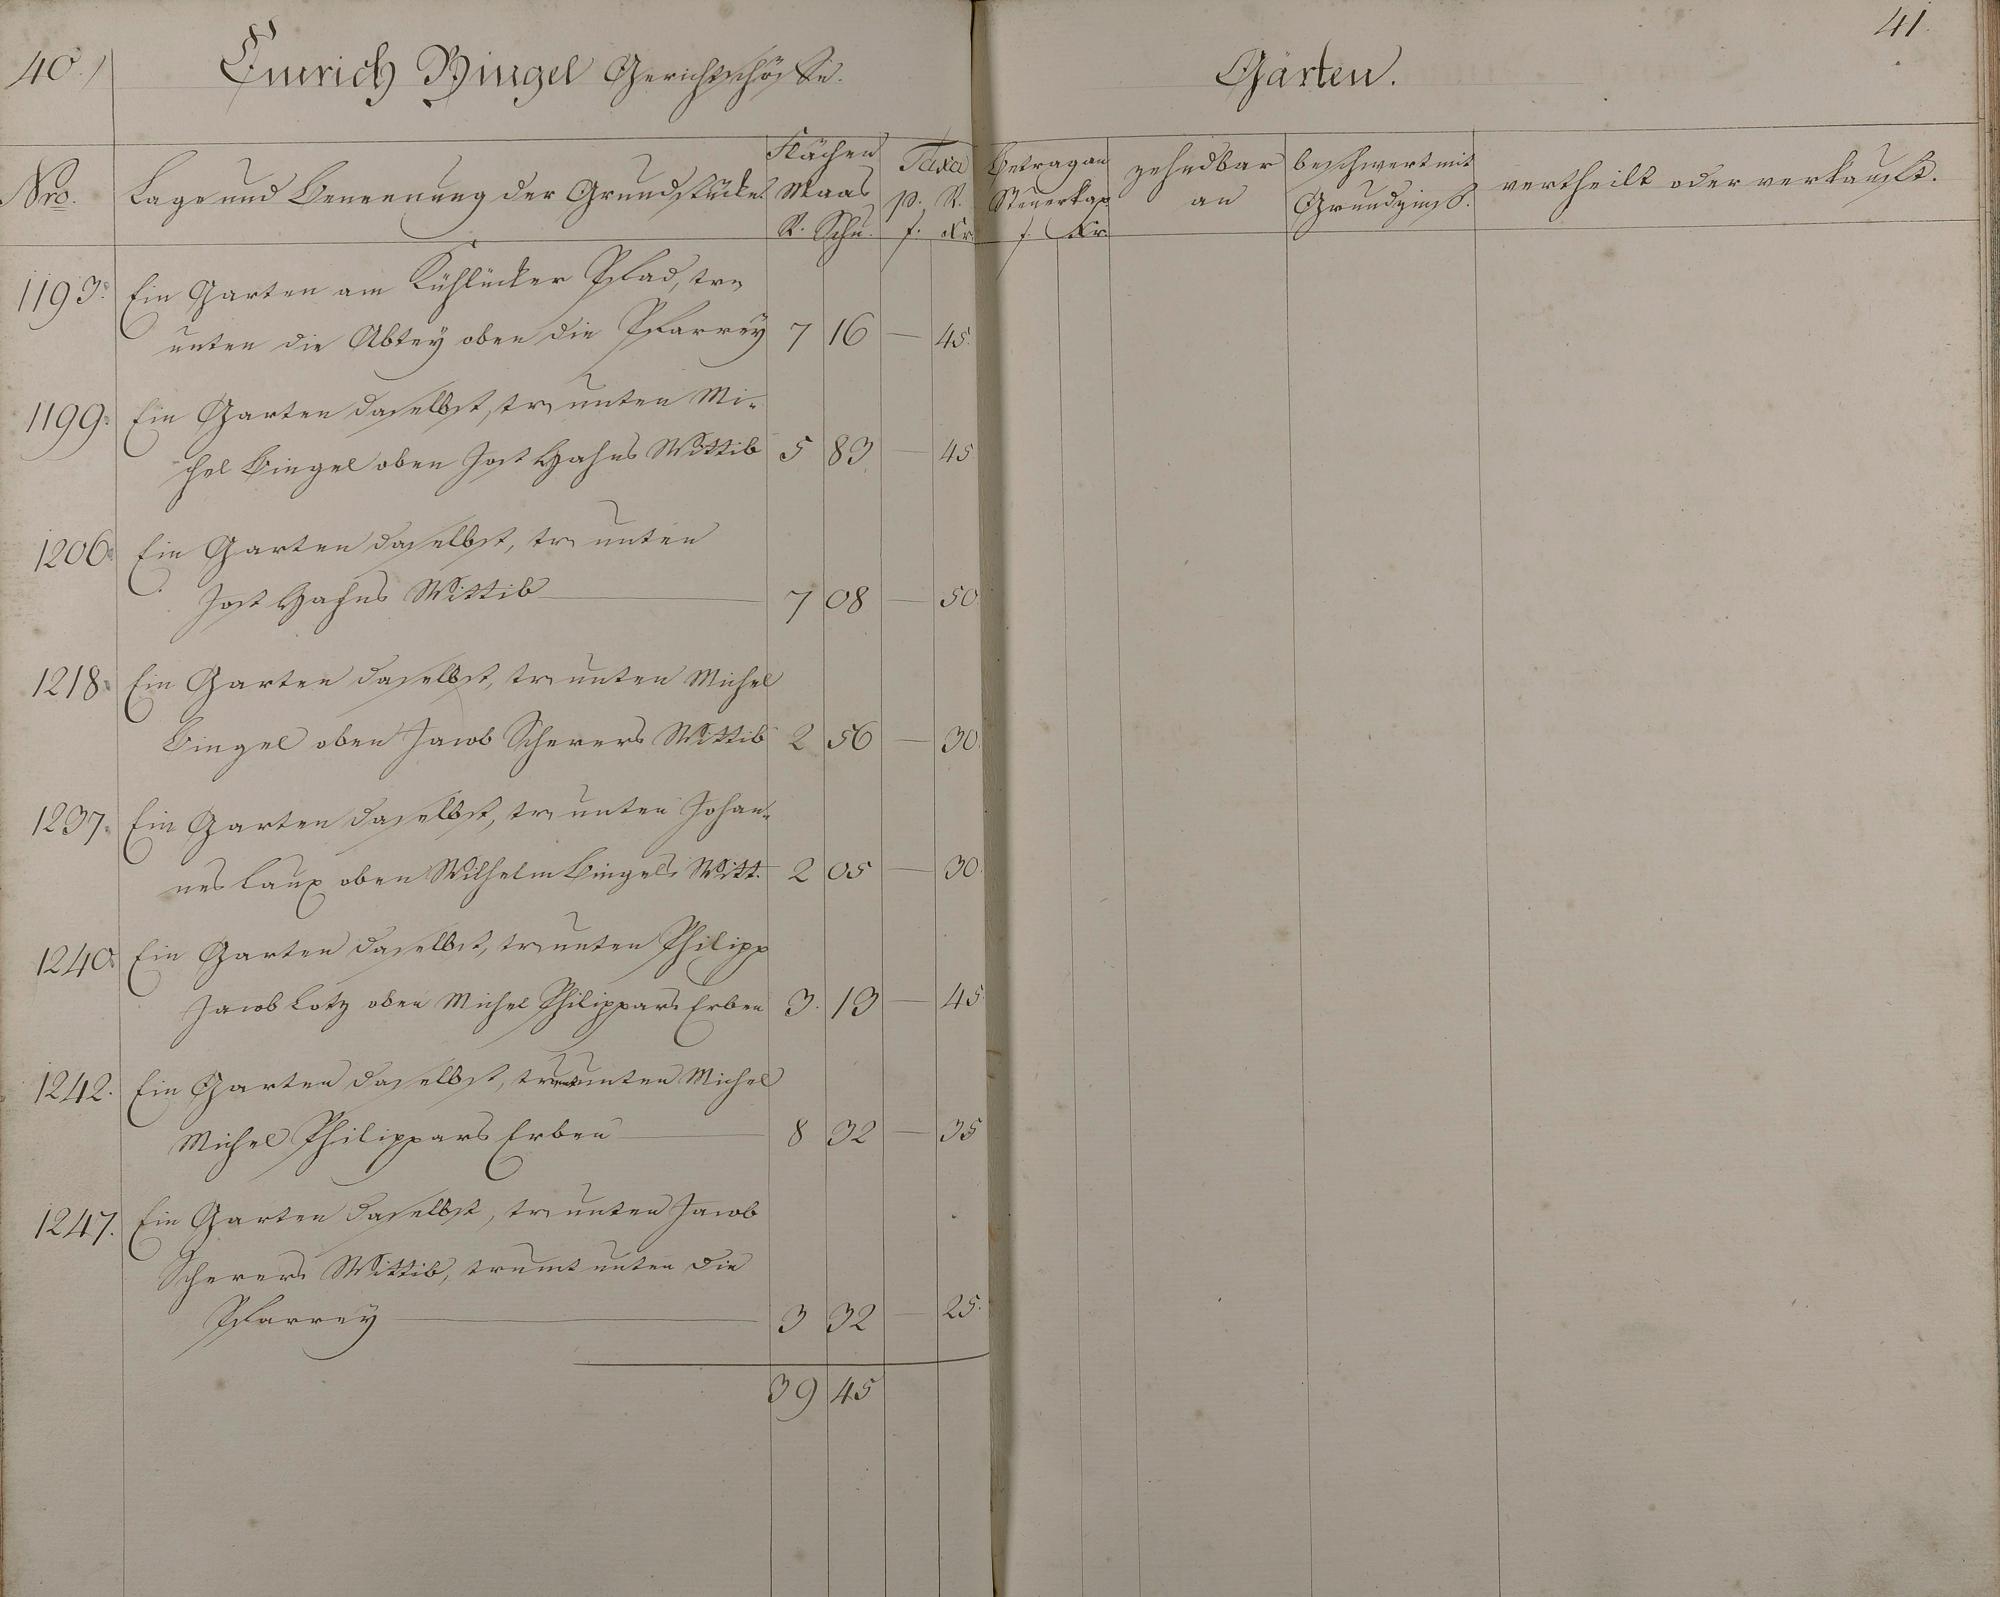 40.
Emrich Bingel Gerichtschöffe.
Nro.
Lage und Benennung der Grundstücke
Flächen
Maas
R. Schu.
Taxa
p. R.
f. Kr.
1193. Ein Garten am Kühlücker Pfad, tr.
unten die Abtey oben die Pfarrey 7 16 — 45.
1199. Ein Garten daselbst, tr. unten Mi-
chel Bingel oben Jost Hahns Wittib 5 83 — 45
1206. Ein Garten daselbst, tr. unten
Jost Hahns Wittib 7 08 — 50
1218. Ein Garten daselbst, tr. unten Michel
Bingel oben Jacob Scherers Wittib 2 56 — 30.
1237. Ein Garten daselbst, tr. unten Johan-
nes Laux oben Wilhelm Bingels Witt. 2 05 — 30.
1240. Ein Garten daselbst, tr. unten Philipp
Jacob Lotz oben Michel Philippars Erben 3. 13 — 45.
1242. Ein Garten daselbst, unten Michel
Michel Philippars Erben 8 32 — 35
1247. Ein Garten daselbst, tr. unten Jacob
Scherers Wittib, trumt unten die
Pfarrey 3 32 — 25.
39 45
41.
Gärten.
Betrag an
Steuerkap
f. Kr.
zehndbar
an
beschwert mit
Grundzinß.
vertheilt oder verkauft.